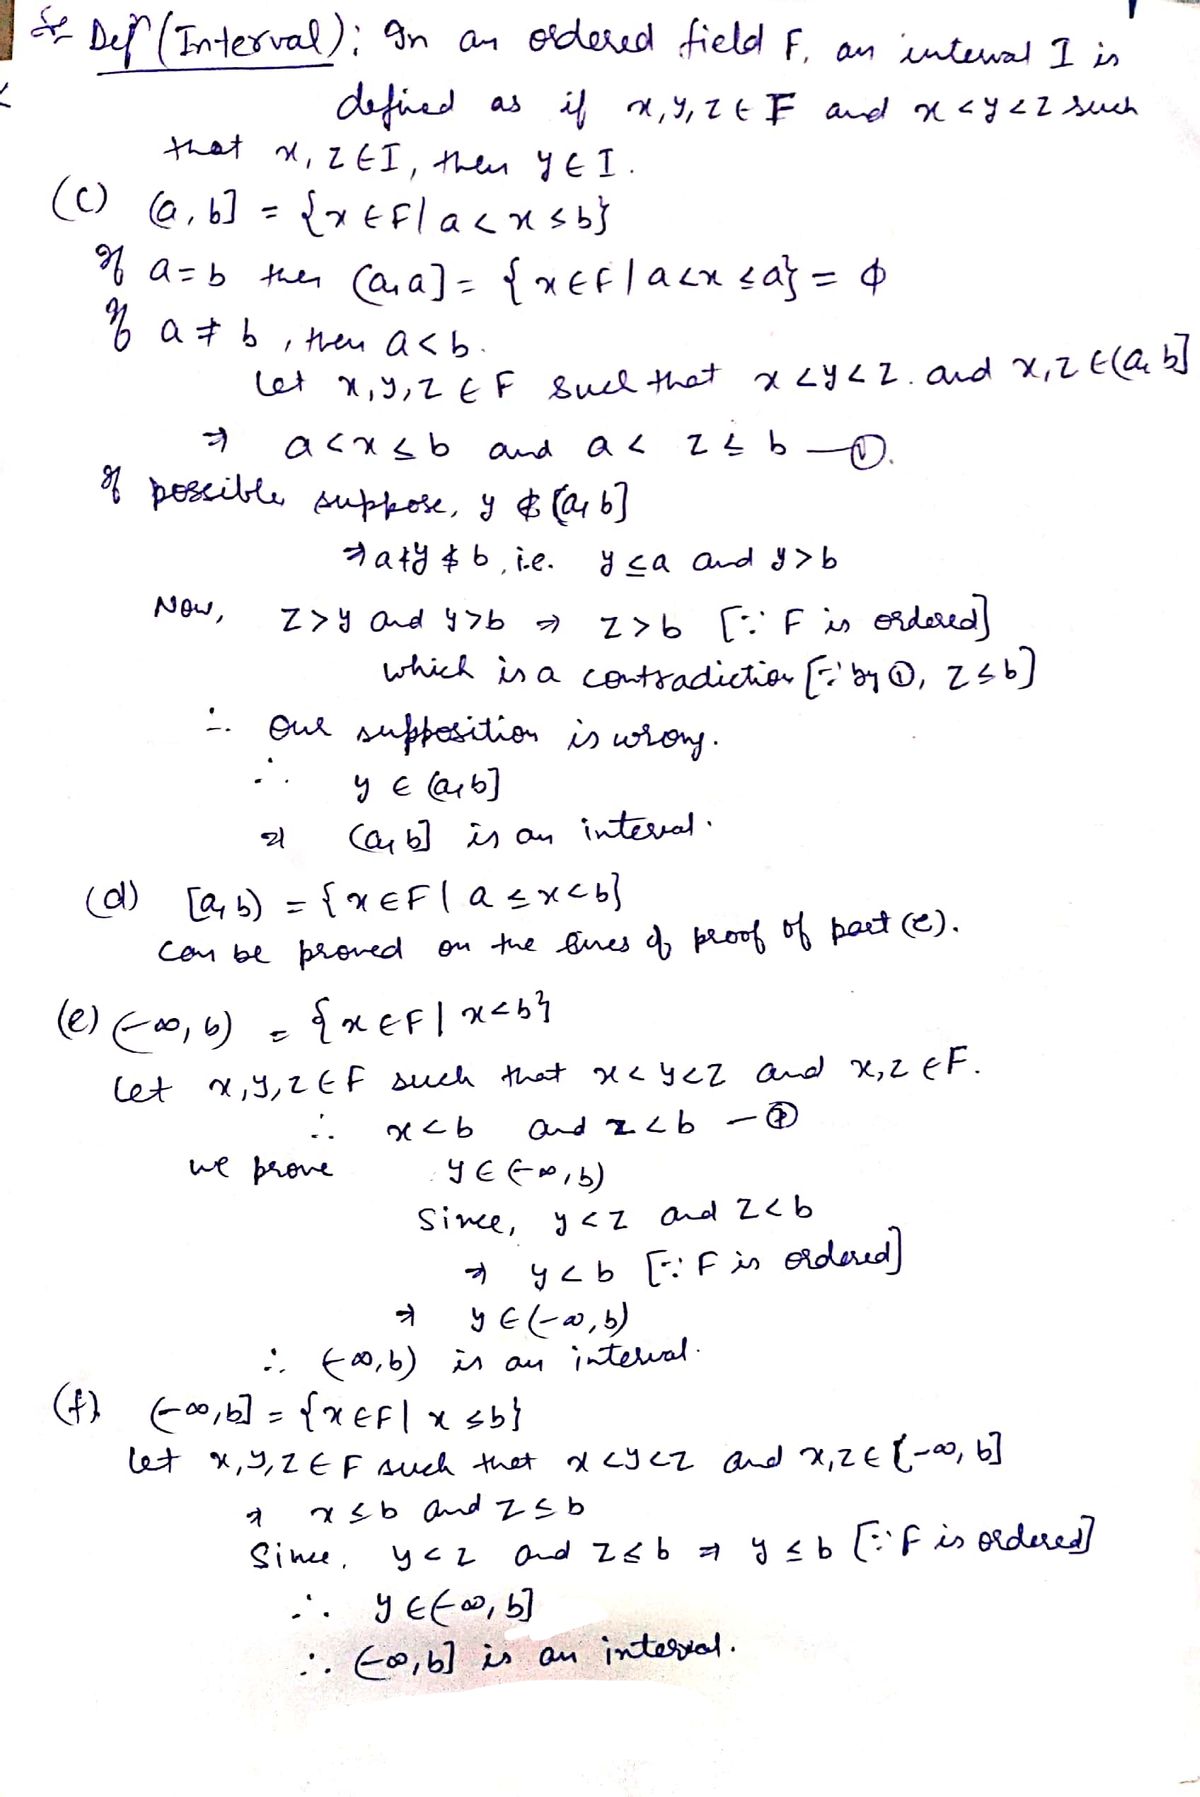 Defⁿ (Interval): In an ordered field F, an interval I is
defined as if x, y, z ∈ F and x < y < z such
that x, z ∈ I, then y ∈ I.
(c) (a, b] = {x ∈ F | a < x ≤ b}
If a = b then (a, a] = {x ∈ F | a < x ≤ a} = ϕ
If a ≠ b, then a < b.
Let x, y, z ∈ F such that x < y < z. and x, z ∈ (a, b]
⇒ a < x ≤ b and a < z ≤ b —①.
If possible, suppose, y ∉ (a, b]
⇒ a ≮ y ≰ b, i.e. y ≤ a and y > b
Now, z > y and y > b ⇒ z > b [∵ F is ordered]
which is a contradiction [∵ by ①, z ≤ b]
∴ Our supposition is wrong.
∴ y ∈ (a, b]
⇒ (a, b] is an interval.
(d) [a, b) = {x ∈ F | a ≤ x < b}
Can be proved on the lines of proof of part (c).
(e) (-∞, b) = {x ∈ F | x < b}
Let x, y, z ∈ F such that x < y < z and x, z ∈ F.
∴ x < b and z < b —②
we prove y ∈ (-∞, b)
Since, y < z and z < b
⇒ y < b [∵ F is ordered]
⇒ y ∈ (-∞, b)
∴ (-∞, b) is an interval.
(f) (-∞, b] = {x ∈ F | x ≤ b}
Let x, y, z ∈ F such that x < y < z and x, z ∈ (-∞, b]
⇒ x ≤ b and z ≤ b
Since, y < z and z ≤ b ⇒ y ≤ b [∵ F is ordered]
∴ y ∈ (-∞, b]
∴ (-∞, b] is an interval.